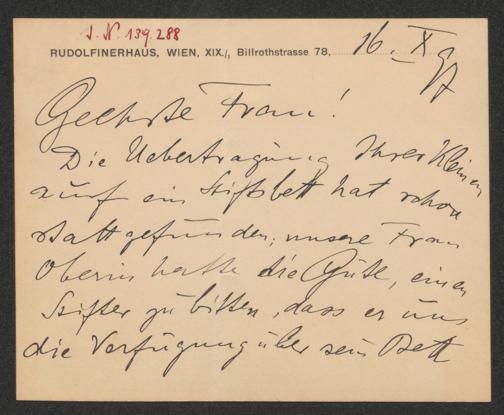 J. N. 139.288
RUDOLFINERHAUS, WIEN, XIX./, Billrothstrasse 78, 16. X 97
Geehrte Frau!
Die Uebertragung Ihrer Kleinen
auf ein Stiftsbett hat schon
stattgefunden; unsere Frau
Oberin hatte die Güte, einen
Stifter zu bitten, dass er uns
die Verfügung über sein Bett